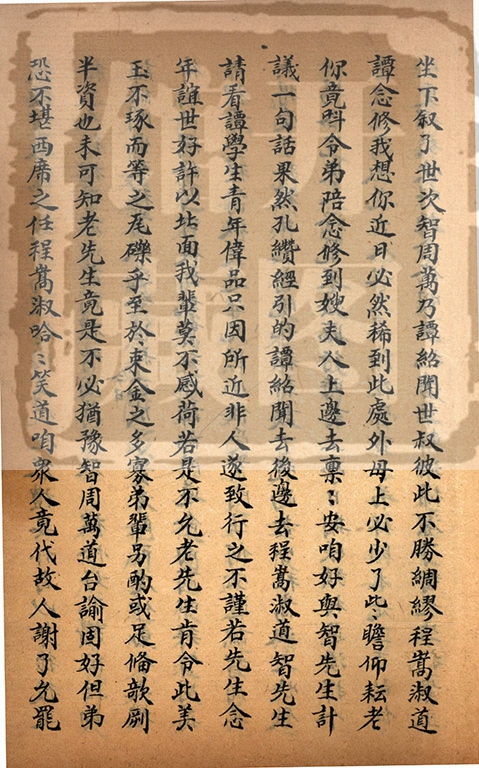 坐下叙了世次智周萬乃譚紹聞世叔彼此不勝綢繆程嵩淑道
譚念修我想你近日必然稀到此處外母上必少了些瞻仰耘老
你竟呌令弟陪念修到嫂夫人上邊去禀〻安咱好與智先生計
議一句話果然孔纘經引的譚紹聞去後邊去程嵩淑道智先生
請看譚學生青年偉品只因所近非人遂致行之不謹若先生念
年誼世好許以北面我輩莫不感荷若是不允老先生肯令此美
玉不琢而等之瓦礫乎至於束金之多寡弟輩另酌或足偹歌劂
半資也未可知老先生竟是不必猶豫智周萬道台諭固好但弟
恐不堪西席之任程嵩淑哈〻笑道咱衆人竟代故人謝了允罷